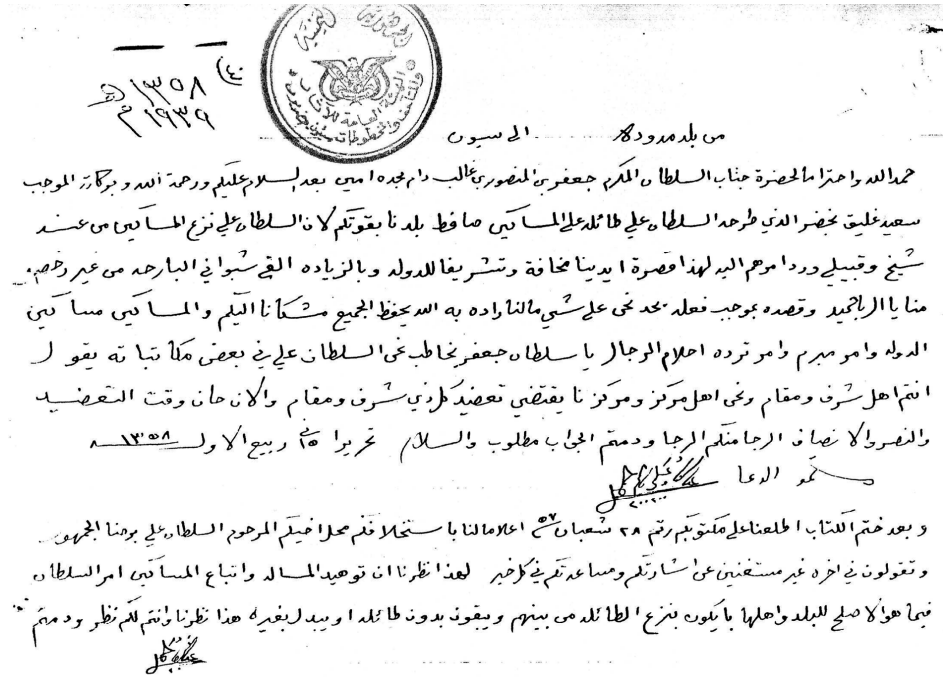 الجمهورية اليمنية
الهيئة العامة للآثار
والمتاحف والمخطوطات سيئون حضرموت
(٤٠
١٣٥٨ هـ
١٩٣٩ م
من بلد مدوده الى سيون
حمد الله واحتراما لحضرة جناب السلطان المكرم جعفر بن المنصور بن غالب دام مجده امين بعد السلام عليكم ورحمة الله وبركاته الموجب
سعيد غليق بخضر الذي طرحه السلطان علي طائله علي المساكين صافط بلدنا بقوتكم لان السلطان علي نزع المساكين من عند
شيخ وقبيلي ورد امرهم اليه لهذا قصرة ايدينا مخافة وتشريفا للدوله وبالزياده في البارحه من غير رخصه
منا يا الرباحميد وقصده بموجب فعله نحن علي شي مالنا راده به الله يحفظ الجميع مشكانا اليكم والمساكين مساكين
الدوله وامر مبرم وامر ترده احلام الرجال يا سلطان جعفر يخاطب نحن السلطان علي في بعض مكاتباته يقول
انتم اهل شرف ومقام ونحن اهل مركز ومركزنا يقتضي تعضيد كل ذي شرف ومقام والان حان وقت التعضيد
والنصر والانصاف الرجا منكم الرجا ودمتم الجواب مطلوب والسلام تحريرا ١٥ ربيع الاول ١٣٥٨
الدعا
وبعد ختم الكتاب اطلعنا على مكتوبكم رقم ٢٨ شعبان ٥٧ اعلاما لنا باستخلافكم محل اخيكم المرحوم السلطان علي
وتقولون في اخره غير مستغنين عن اشارتكم ومساعدتكم في كل خير لهذا نظرنا ان توهيد المساله واتباع المساكين امر السلطان
فيما هو الاصلح للبلد واهلها يكون بنزع الطائله من بينهم ويبقون بدون طائله او يبدل بغيره هذا نظرنا وانتم لكم نظر ودمتم